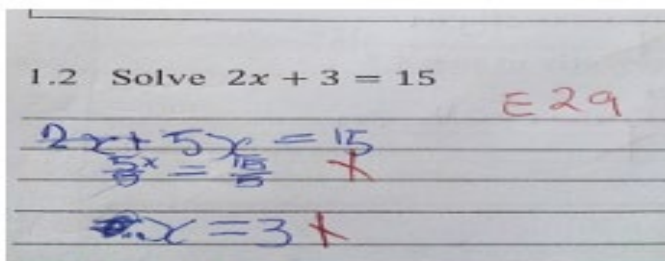 1.2 Solve 2x + 3 = 15
E29
2x + 5x = 15
5x/5 = 15/5
x = 3